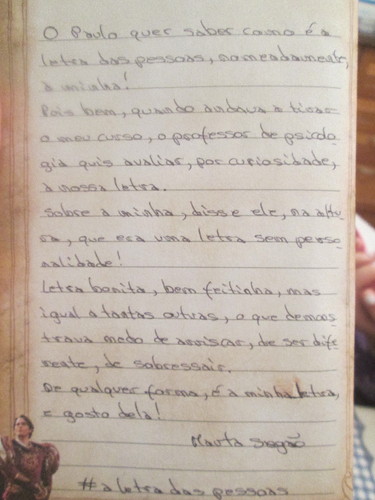 O Paulo quer saber como é a
letra das pessoas, nomeadamente,
a minha!
Pois bem, quando andava a tirar
o meu curso, o professor de psicolo
gia quis avaliar, por curiosidade,
a nossa letra.
Sobre a minha, disse ele, na altu
ra, que era uma letra sem perso
nalidade!
Letra bonita, bem feitinha, mas
igual a tantas outras, o que demons
trava medo de arriscar, de ser dife
rente, de sobressair.
De qualquer forma, é a minha letra,
e gosto dela!
Marta
#a letra das pessoas